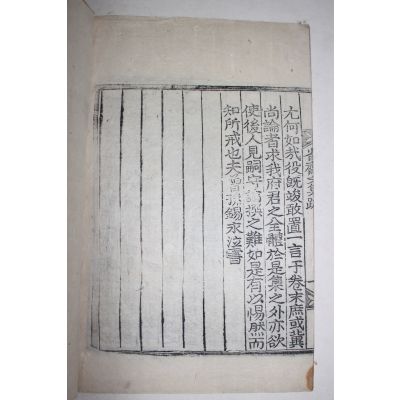 齋集跋
尤何如哉役旣竣敢置一言于卷末庶或冀
尚論者求我府君之全體於是集之外亦欲
使後人見嗣守撰之難如是有以惕然而
知所戒也夫曾孫錫永泣書